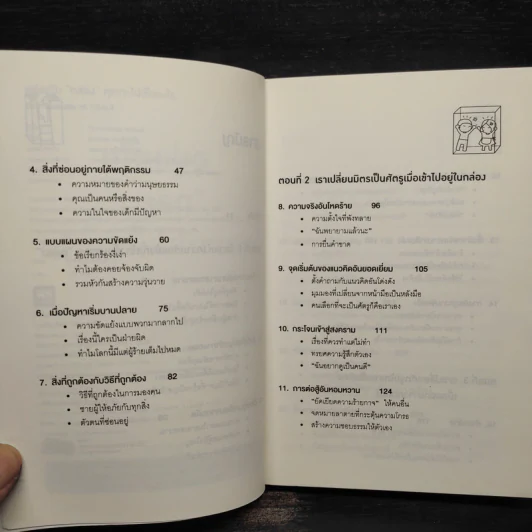 4. สิ่งที่ซ่อนอยู่ภายใต้พฤติกรรม 47
• ความหมายของคำว่ามนุษยธรรม
• คุณเป็นคนหรือสิ่งของ
• ความในใจของเด็กมีปัญหา
5. แบบแผนของความขัดแย้ง 60
• ข้อเรียกร้องโง่เง่า
• ทำไมต้องคอยจ้องจับผิด
• รวมหัวกันสร้างความวุ่นวาย
6. เมื่อปัญหาเริ่มบานปลาย 75
• ความขัดแย้งแบบพวกมากลากไป
• เรื่องนี้ใครเป็นฝ่ายผิด
• ทำไมโลกนี้มีแต่ผู้ร้ายเต็มไปหมด
7. สิ่งที่ถูกต้องกับวิธีที่ถูกต้อง 82
• วิธีที่ถูกต้องในการมองคน
• ชายผู้ให้อภัยกับทุกสิ่ง
• ตัวตนที่ซ่อนอยู่
ตอนที่ 2 เราเปลี่ยนมิตรเป็นศัตรูเมื่อเข้าไปอยู่ในกล่อง
8. ความจริงอันโหดร้าย 96
• ความตั้งใจที่พังทลาย
• "ฉันพยายามแล้วนะ"
• การยื่นคำขาด
9. จุดเริ่มต้นของแนวคิดอันยอดเยี่ยม 105
• ตั้งคำถามกับแนวคิดอันโด่งดัง
• มุมมองที่เปลี่ยนจากหน้ามือเป็นหลังมือ
• คนเลือกที่จะเป็นศัตรูก็คือเราเอง
10. กระโจนเข้าสู่สงคราม 111
• เรื่องที่ควรทำแต่ไม่ทำ
• ทรยศความรู้สึกตัวเอง
• "ฉันอยากดูเป็นคนดี"
11. การต่อสู้อันหอมหวาน 124
• "ยัดเยียดความร้ายกาจ" ให้คนอื่น
• จดหมายลาตายที่กระตุ้นความโกรธ
• สร้างความชอบธรรมให้ตัวเอง